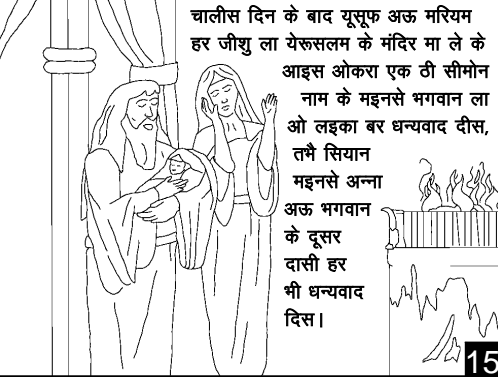 चालीस दिन के बाद यूसूफ अऊ मरियम
हर जीशु ला येरूसलम के मंदिर मा ले के
आइस ओकरा एक ठी सीमोन
नाम के मइनसे भगवान ला
ओ लइका बर धन्यवाद दीस,
तभै सियान
मइनसे अन्ना
अऊ भगवान
के दूसर
दासी हर
भी धन्यवाद
दिस।
15